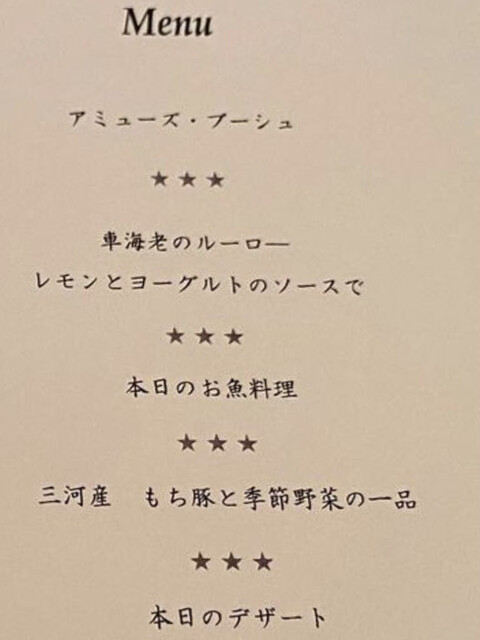 Menu
アミューズ・ブーシュ
★★★
車海老のルーロ―
レモンとヨーグルトのソースで
★★★
本日のお魚料理
★★★
三河産　もち豚と季節野菜の一品
★★★
本日のデザート